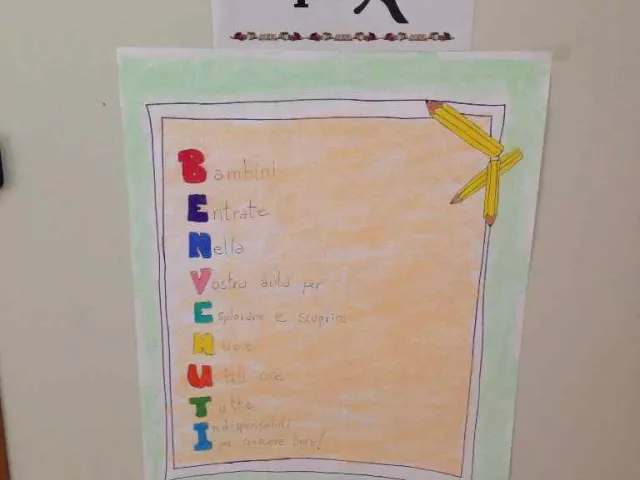 Bambini
Entrate
Nella
Vostra aula per
Esplorare e scoprire
Nuove
Utili cose
Tutte
Indispensabili
per crescere bene!